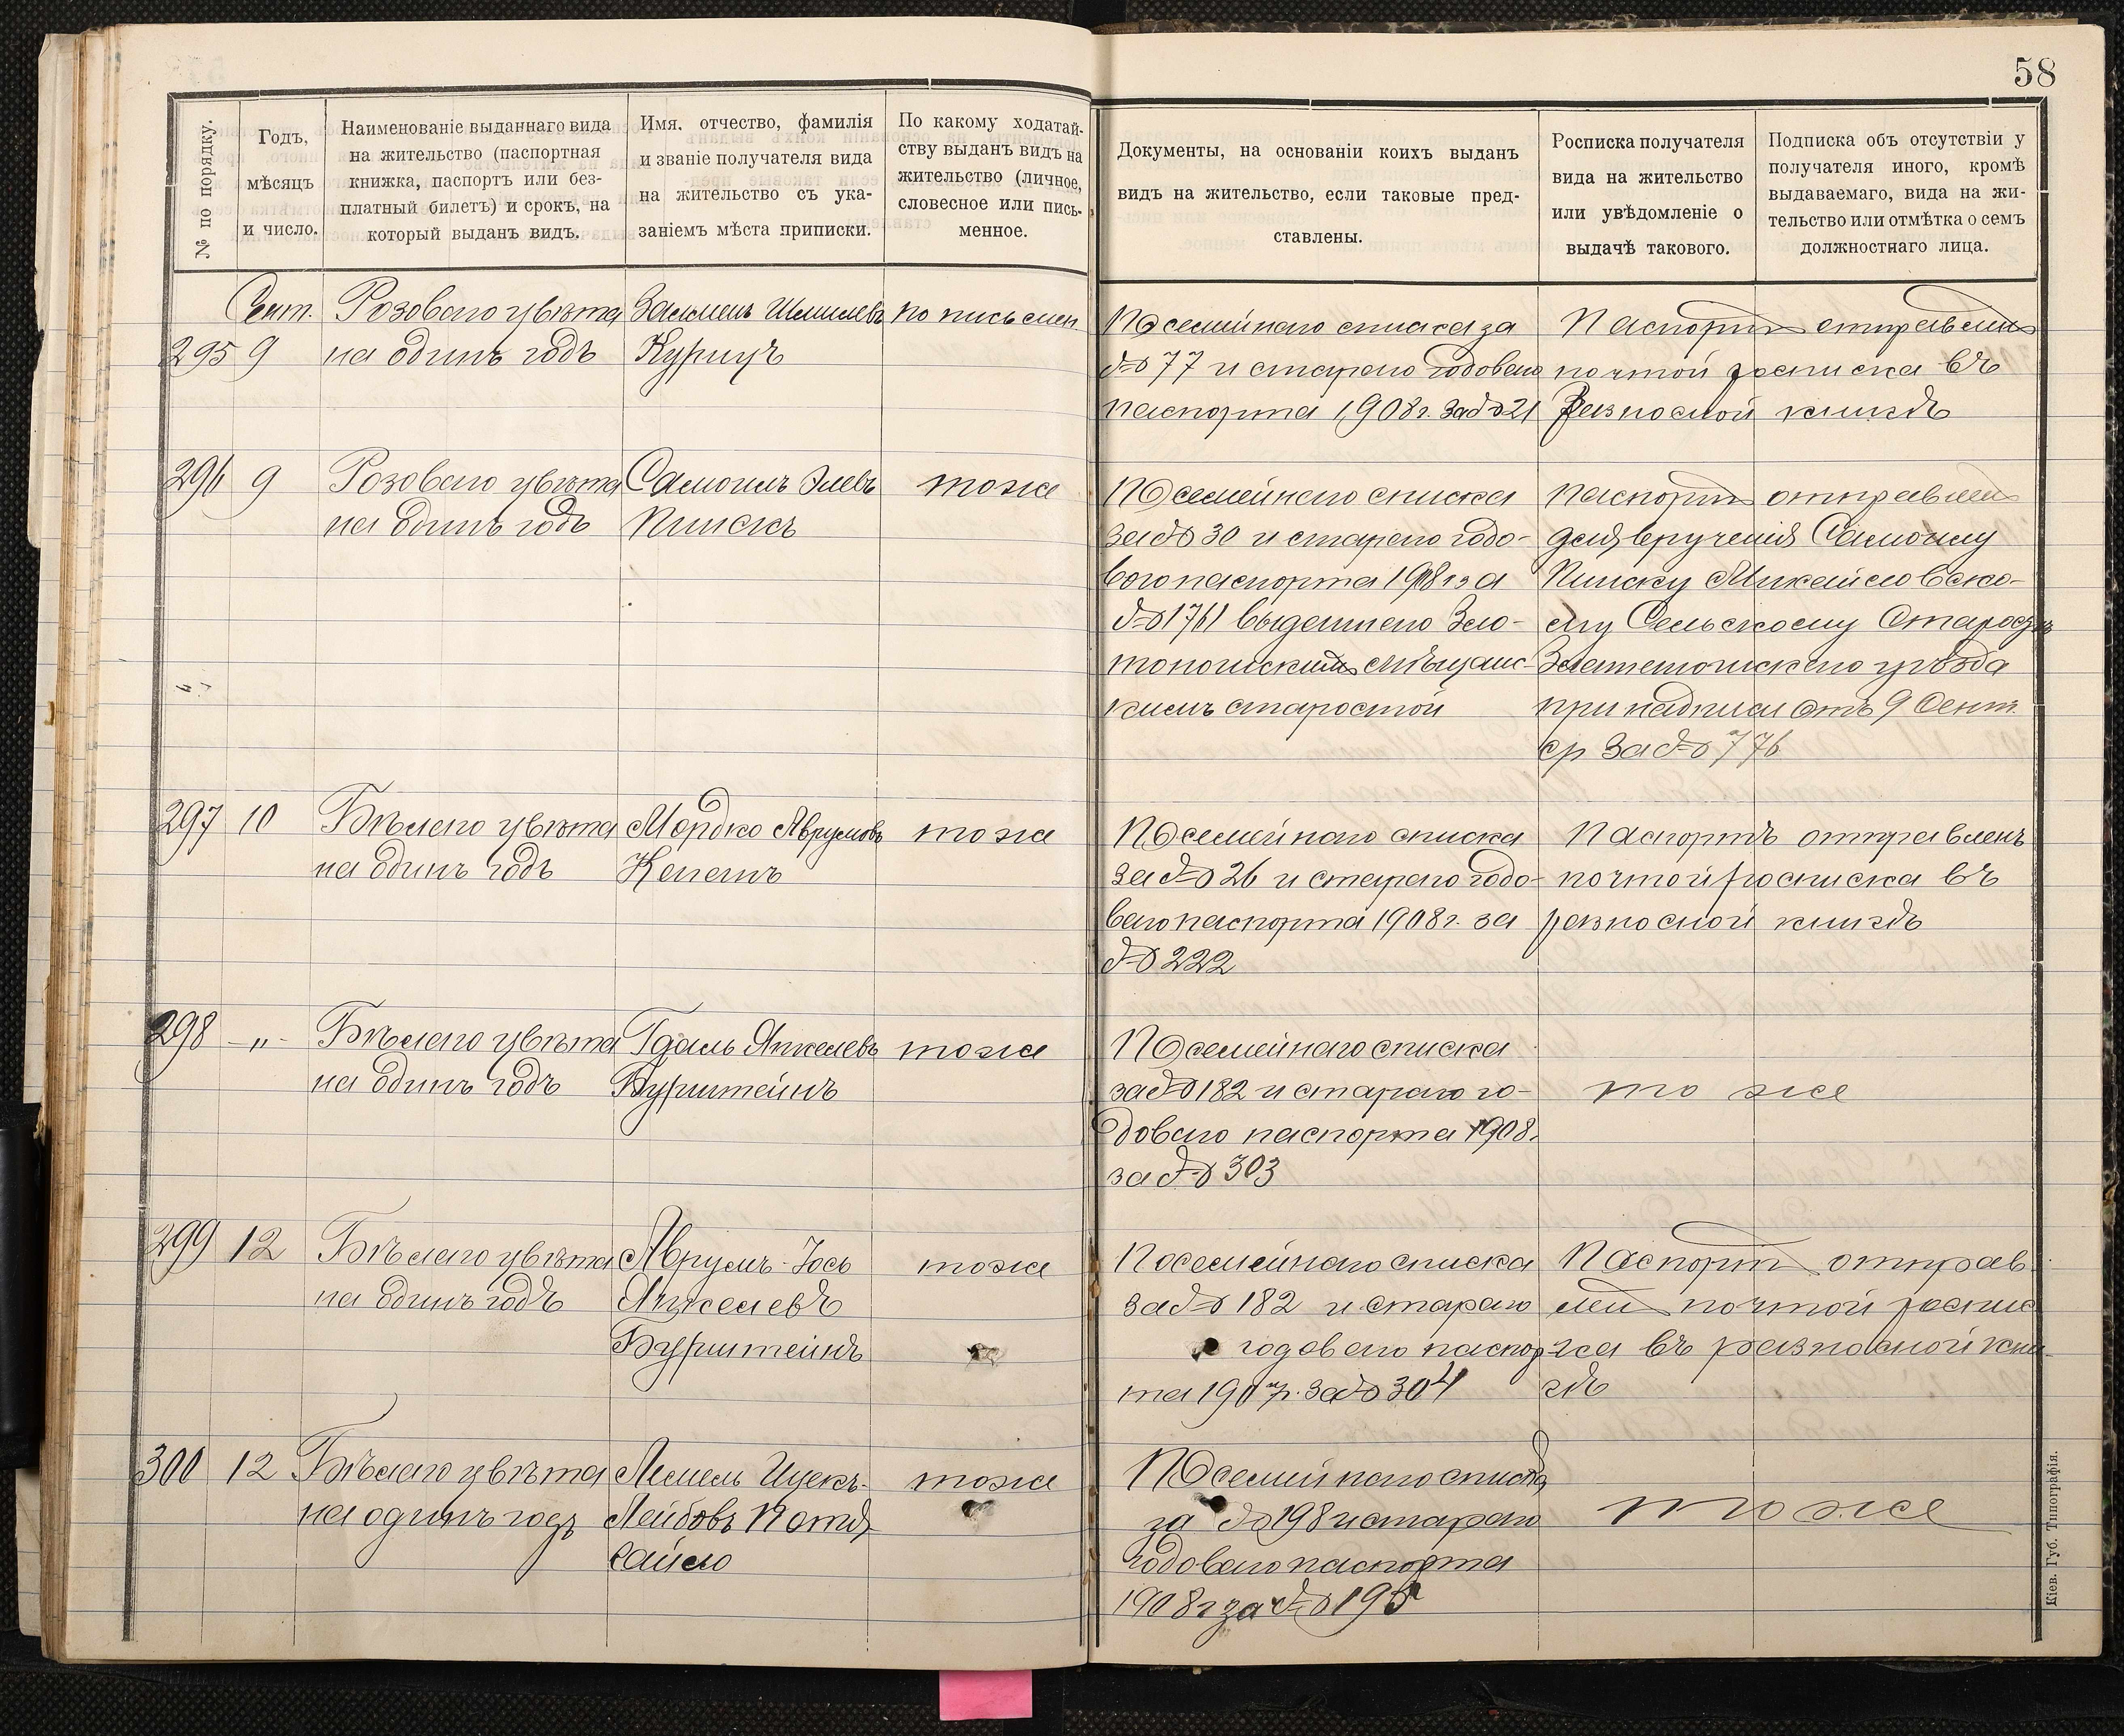 58
№ по порядку.
Годъ,
мѣсяцъ
и число.
Наименованіе выданнаго вида
на жительство (паспортная
книжка, паспортъ или без-
платный билетъ) и срокъ, на
который выданъ видъ.
Имя. отчество, фамилія
и званіе получателя вида
на жительство съ ука-
заніемъ мѣста приписки.
По какому ходатай-
ству выданъ видъ на
жительство (личное,
словесное или пись-
менное.
Документы, на основаніи коихъ выданъ
видъ на жительство, если таковые пред-
ставлены.
Росписка получателя
вида на жительство
или увѣдомленіе о
выдачѣ такового.
Подписка объ отсутствіи у
получателя иного, кромѣ
выдаваемаго, вида на жи-
тельство или отмѣтка о семъ
должностнаго лица.
Сент.
295 9
Розоваго цвѣта
на одинъ годъ
Курицъ
по письмен
По семейнаго списка за
№ 77 и стараго годоваго
паспорта 1908 г. за № 21
Паспортъ отправленъ
почтой росписка въ
Разносной книгѣ
296 9
Розоваго цвѣта
на одинъ годъ
Самоилъ Элевъ
Пинскъ
тоже
По семейнаго списка
за № 30 и стараго годо-
вого паспорта 1908 г за
№ 1761 выданнаго Золо-
тоношскимъ мѣщанс-
кимъ старостой
Паспортъ отправленъ
для врученія Самоилу
Пинску Михайловско-
му Сельскому Старостѣ
Златоношскаго уѣзда
при надписи отъ 9 Сент.
ср за № 776
297 10
Бѣлаго цвѣта
на одинъ годъ
Мордко Аврумовъ
Капанъ
тоже
По семейнаго списка
за № 26 и стараго годо-
ваго паспорта 1908 г. за
№ 222
Паспортъ отправленъ
почтой росписка въ
разносной книгѣ
298 -„-
Бѣлаго цвѣта
на одинъ годъ
Гдаль Янкелевъ
Бурштейнъ
тоже
По семейнаго списка
за № 182 и стараго го-
доваго паспорта 1908.
за № 303
то же
299 12
Бѣлаго цвѣта
на одинъ годъ
Аврумъ-Іось
Янкелевъ
Бурштейнъ
тоже
По семейнаго списка
за № 182 и стараго
годоваго паспор-
та 1907 г. за № 304
Паспортъ отправ
ленъ почтой роспис
ка въ разносной кни-
гѣ
300 12
Бѣлаго цвѣта
на одинъ годъ
Лемель Ицекъ-
Лейбовъ
тоже
По семейнаго списка
за № 198 и стараго
годоваго паспорта
1908 г за № 195
тоже
Кіев. Губ. Типографія.